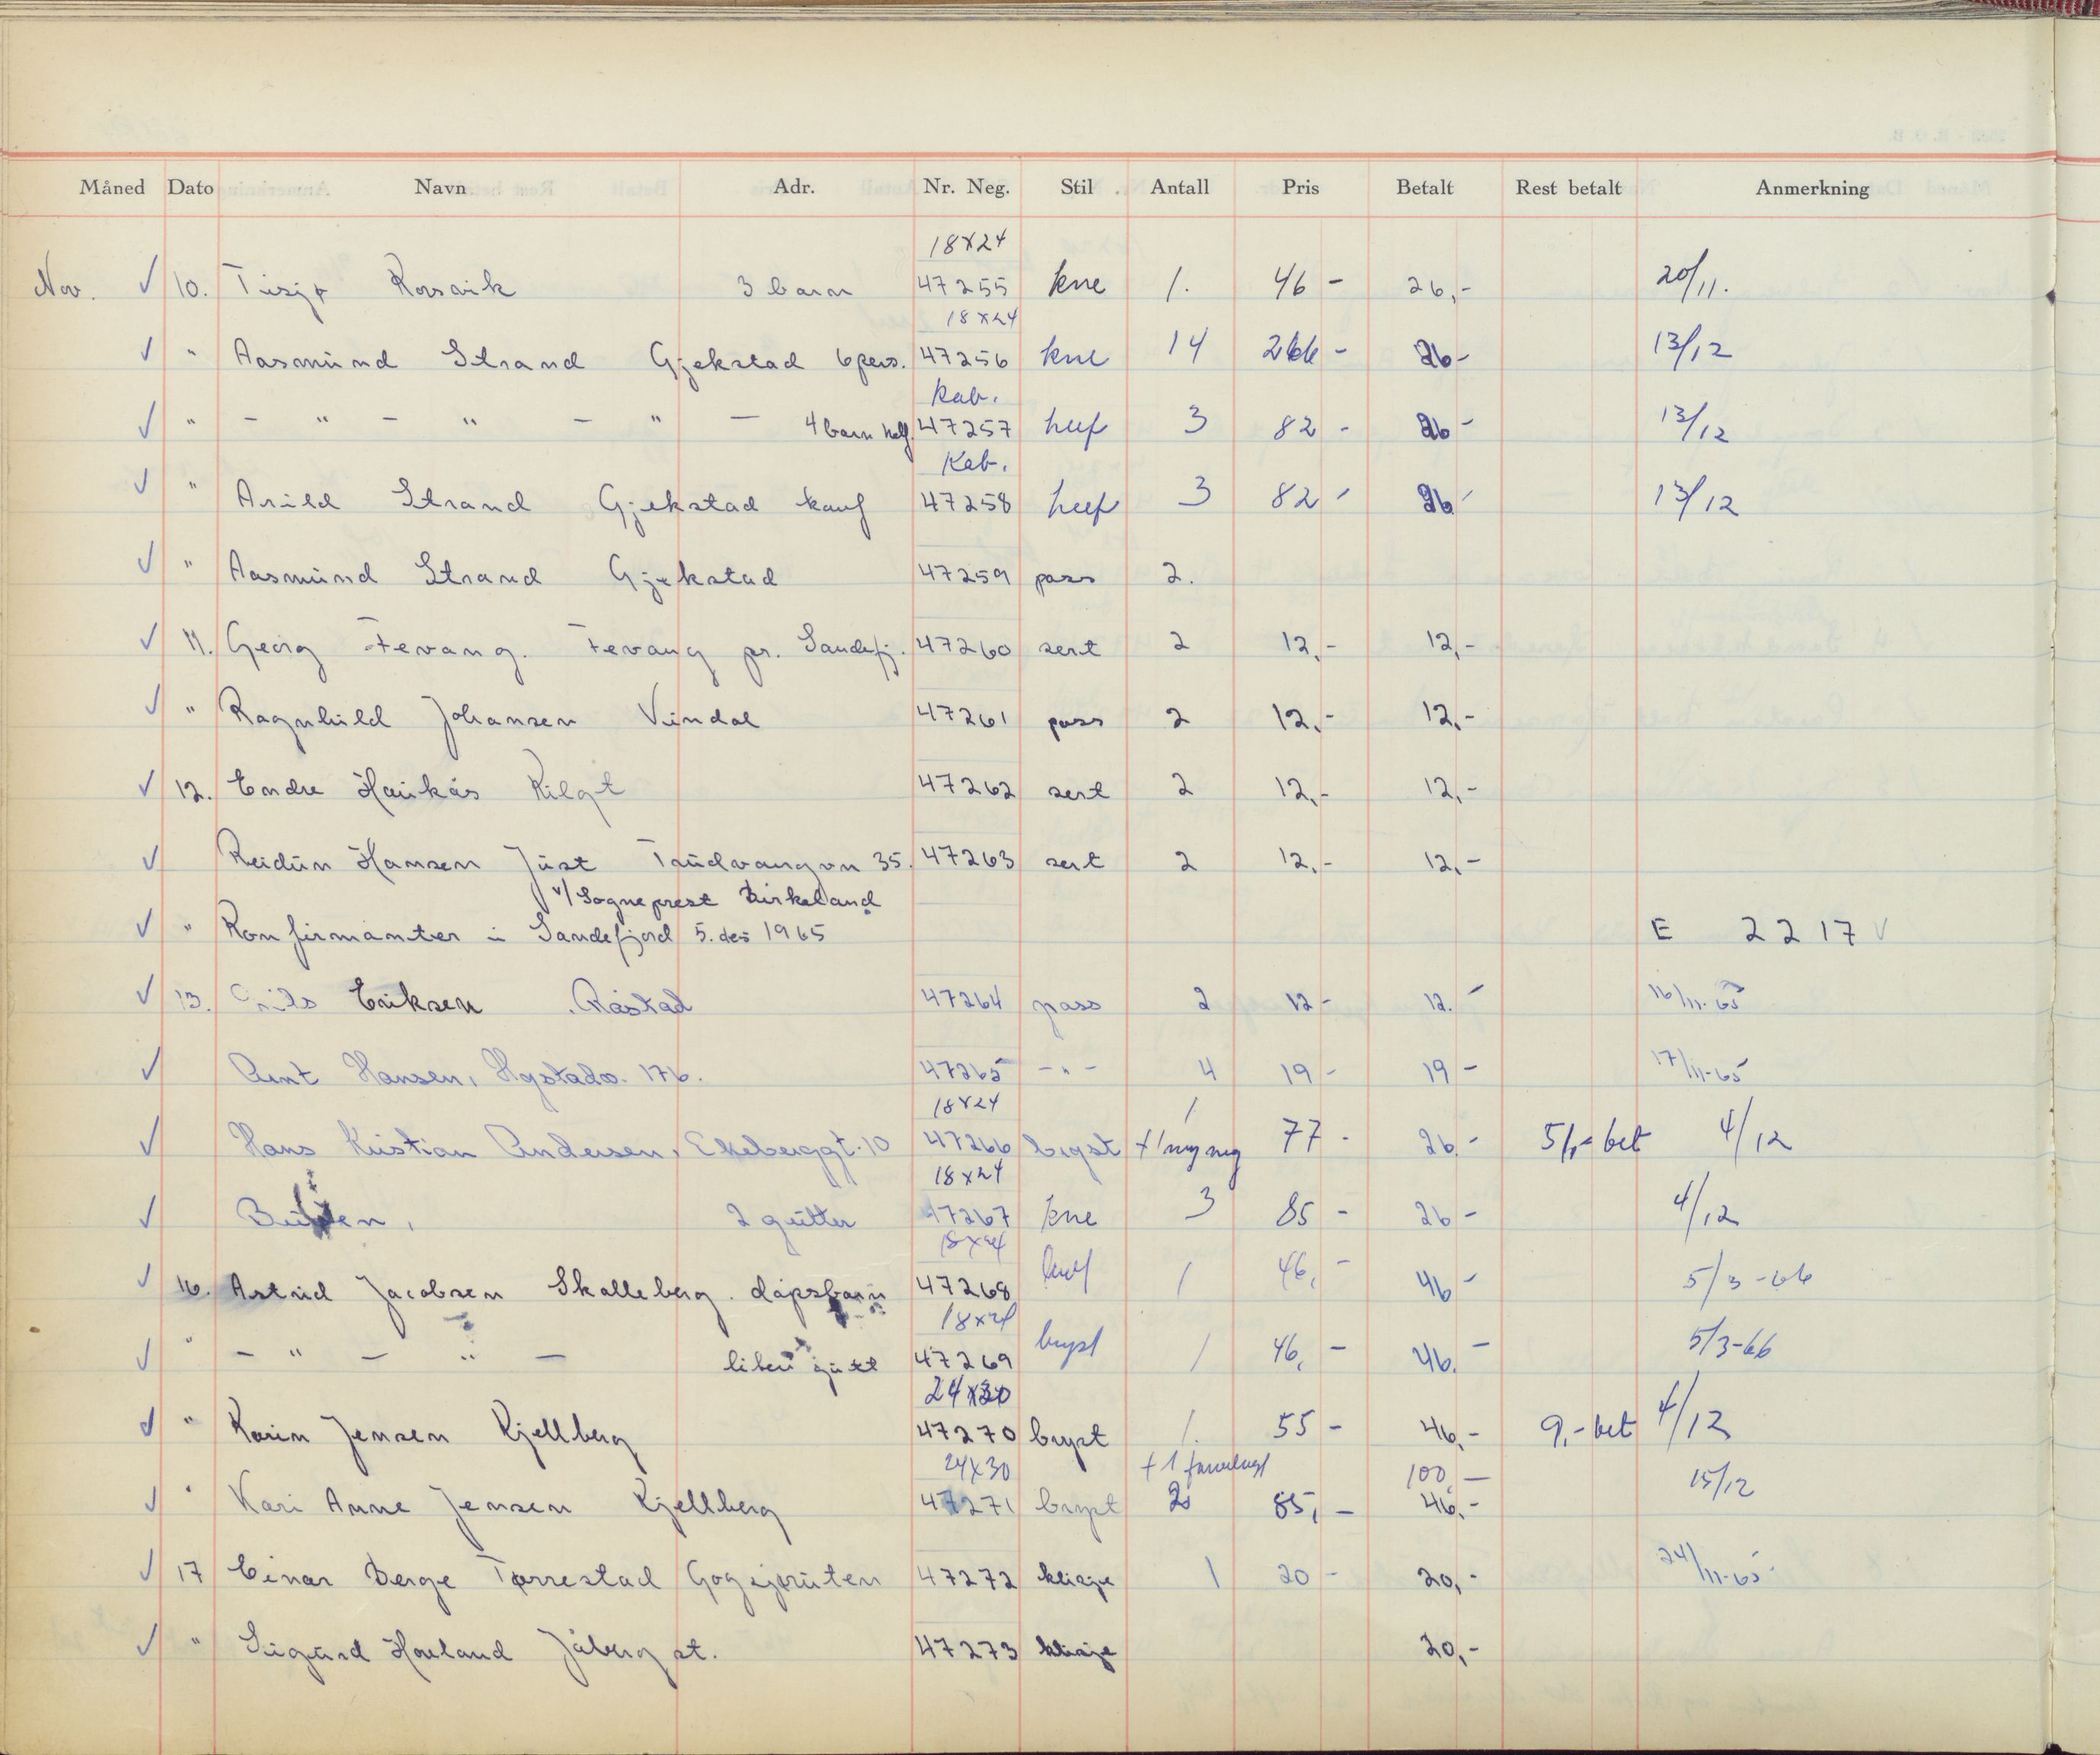 Måned Dato Navn Adr. Nr. Neg. Stil Antall Pris Betalt Rest betalt Anmerkning
18x24
Nov. ✓ 10. Rosvik 3 barn 47255 kne 1. 46 - 26,- 20/11.
18x24
✓ " Aasmund Strand Gjekstad 6 pers. 47256 kne 14 266 - 26- 13/12
Kab.
✓ " - " - " - " - 4 barn 47257 3 82 - 26- 13/12
Kab.
✓ " Arild Strand Gjekstad konf 47258 3 82 - 26 - 13/12
✓ " Aasmund Strand Gjekstad 47259 pass 2.
✓ 11. Georg Fevang. Fevang pr. Sandefj. 47260 sert 2 12,- 12,-
✓ " Ragnhild Johansen Vindal 47261 pass 2 12,- 12,-
✓ 12. Endre Haukås Kilgt 47262 sert 2 12,- 12,-
✓ Reidun Hansen Just Trudvangvn 35. 47263 sert 2 12,- 12,-
v/ Sogneprest Birkeland
✓ " Konfirmanter i Sandefjord 5. des 1965 E 2217 ✓
✓ 13. Eriksen Råstad 47264 pass 2 12 - 12.- 16/11-65
✓ Arnt Hansen, Hystadv. 176. 47265 -"- 4 19 - 19 - 17/11-65
18x24 1
✓ Hans Kristian Andersen, Ekeberggt. 10 47266 bryst + 1 ny neg 77 - 26.- 51,- bet 4/12
18x24
✓ 2 gutter 47267 kne 3 85 - 26 - 4/12
18x24
✓ 16. Astrid Jacobsen Skalleberg. dåpsbarn 47268 1 46,- 46 - 5/3-66
18x24
✓ " - " - " - liten gutt 47269 bryst 1 46,- 46.- 5/3-66
24x30
✓ " Karin Jensen Kjellberg 47270 bryst 1. 55 - 46,- 9,- bet 4/12
24x30 + 1 100,-
✓ " Kari Anne Jensen Kjellberg 47271 bryst 2 85,- 46,- 15/12
✓ 17 Einar Berge Tørrestad Gogsjøruten 47272 klisje 1 20 - 20,- 24/11-65
✓ " Sigurd Hovland Jåberg st. 47273 klisje 20,-